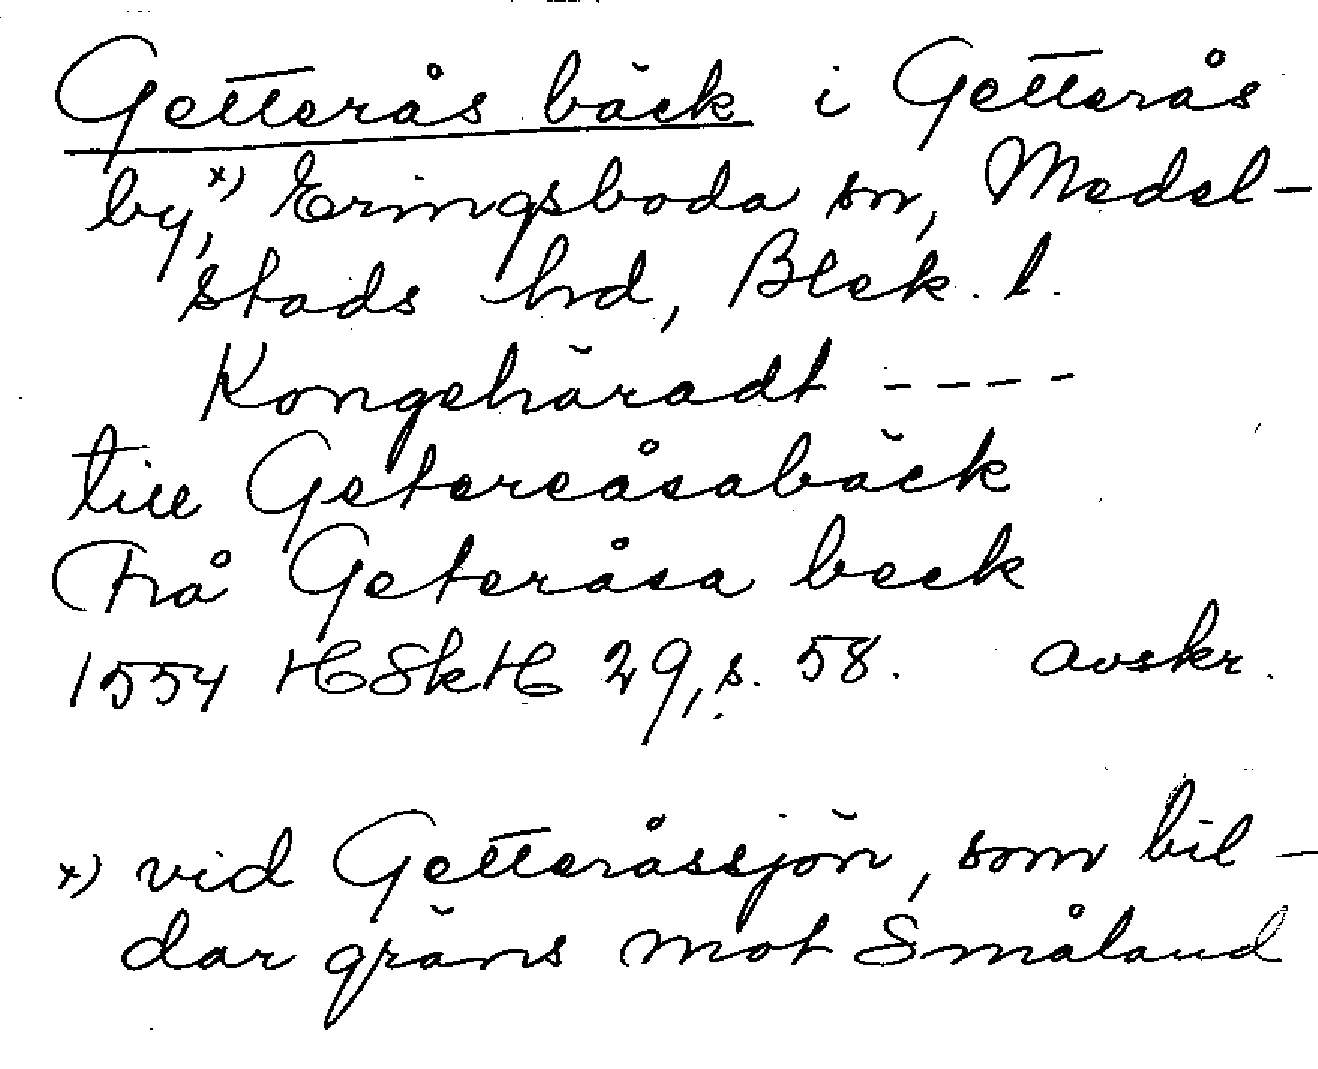 Getterås bäck i Getterås
by,x) Eringsboda sn, Medel-
stads hd, Blek. l.
Kongehäradt ----
till Getereåsabäck
Frå Geteråsa beck
1554 HSkH 29, s. 58. avskr.
x) vid Getteråssjön, som bil-
dar gräns mot Småland